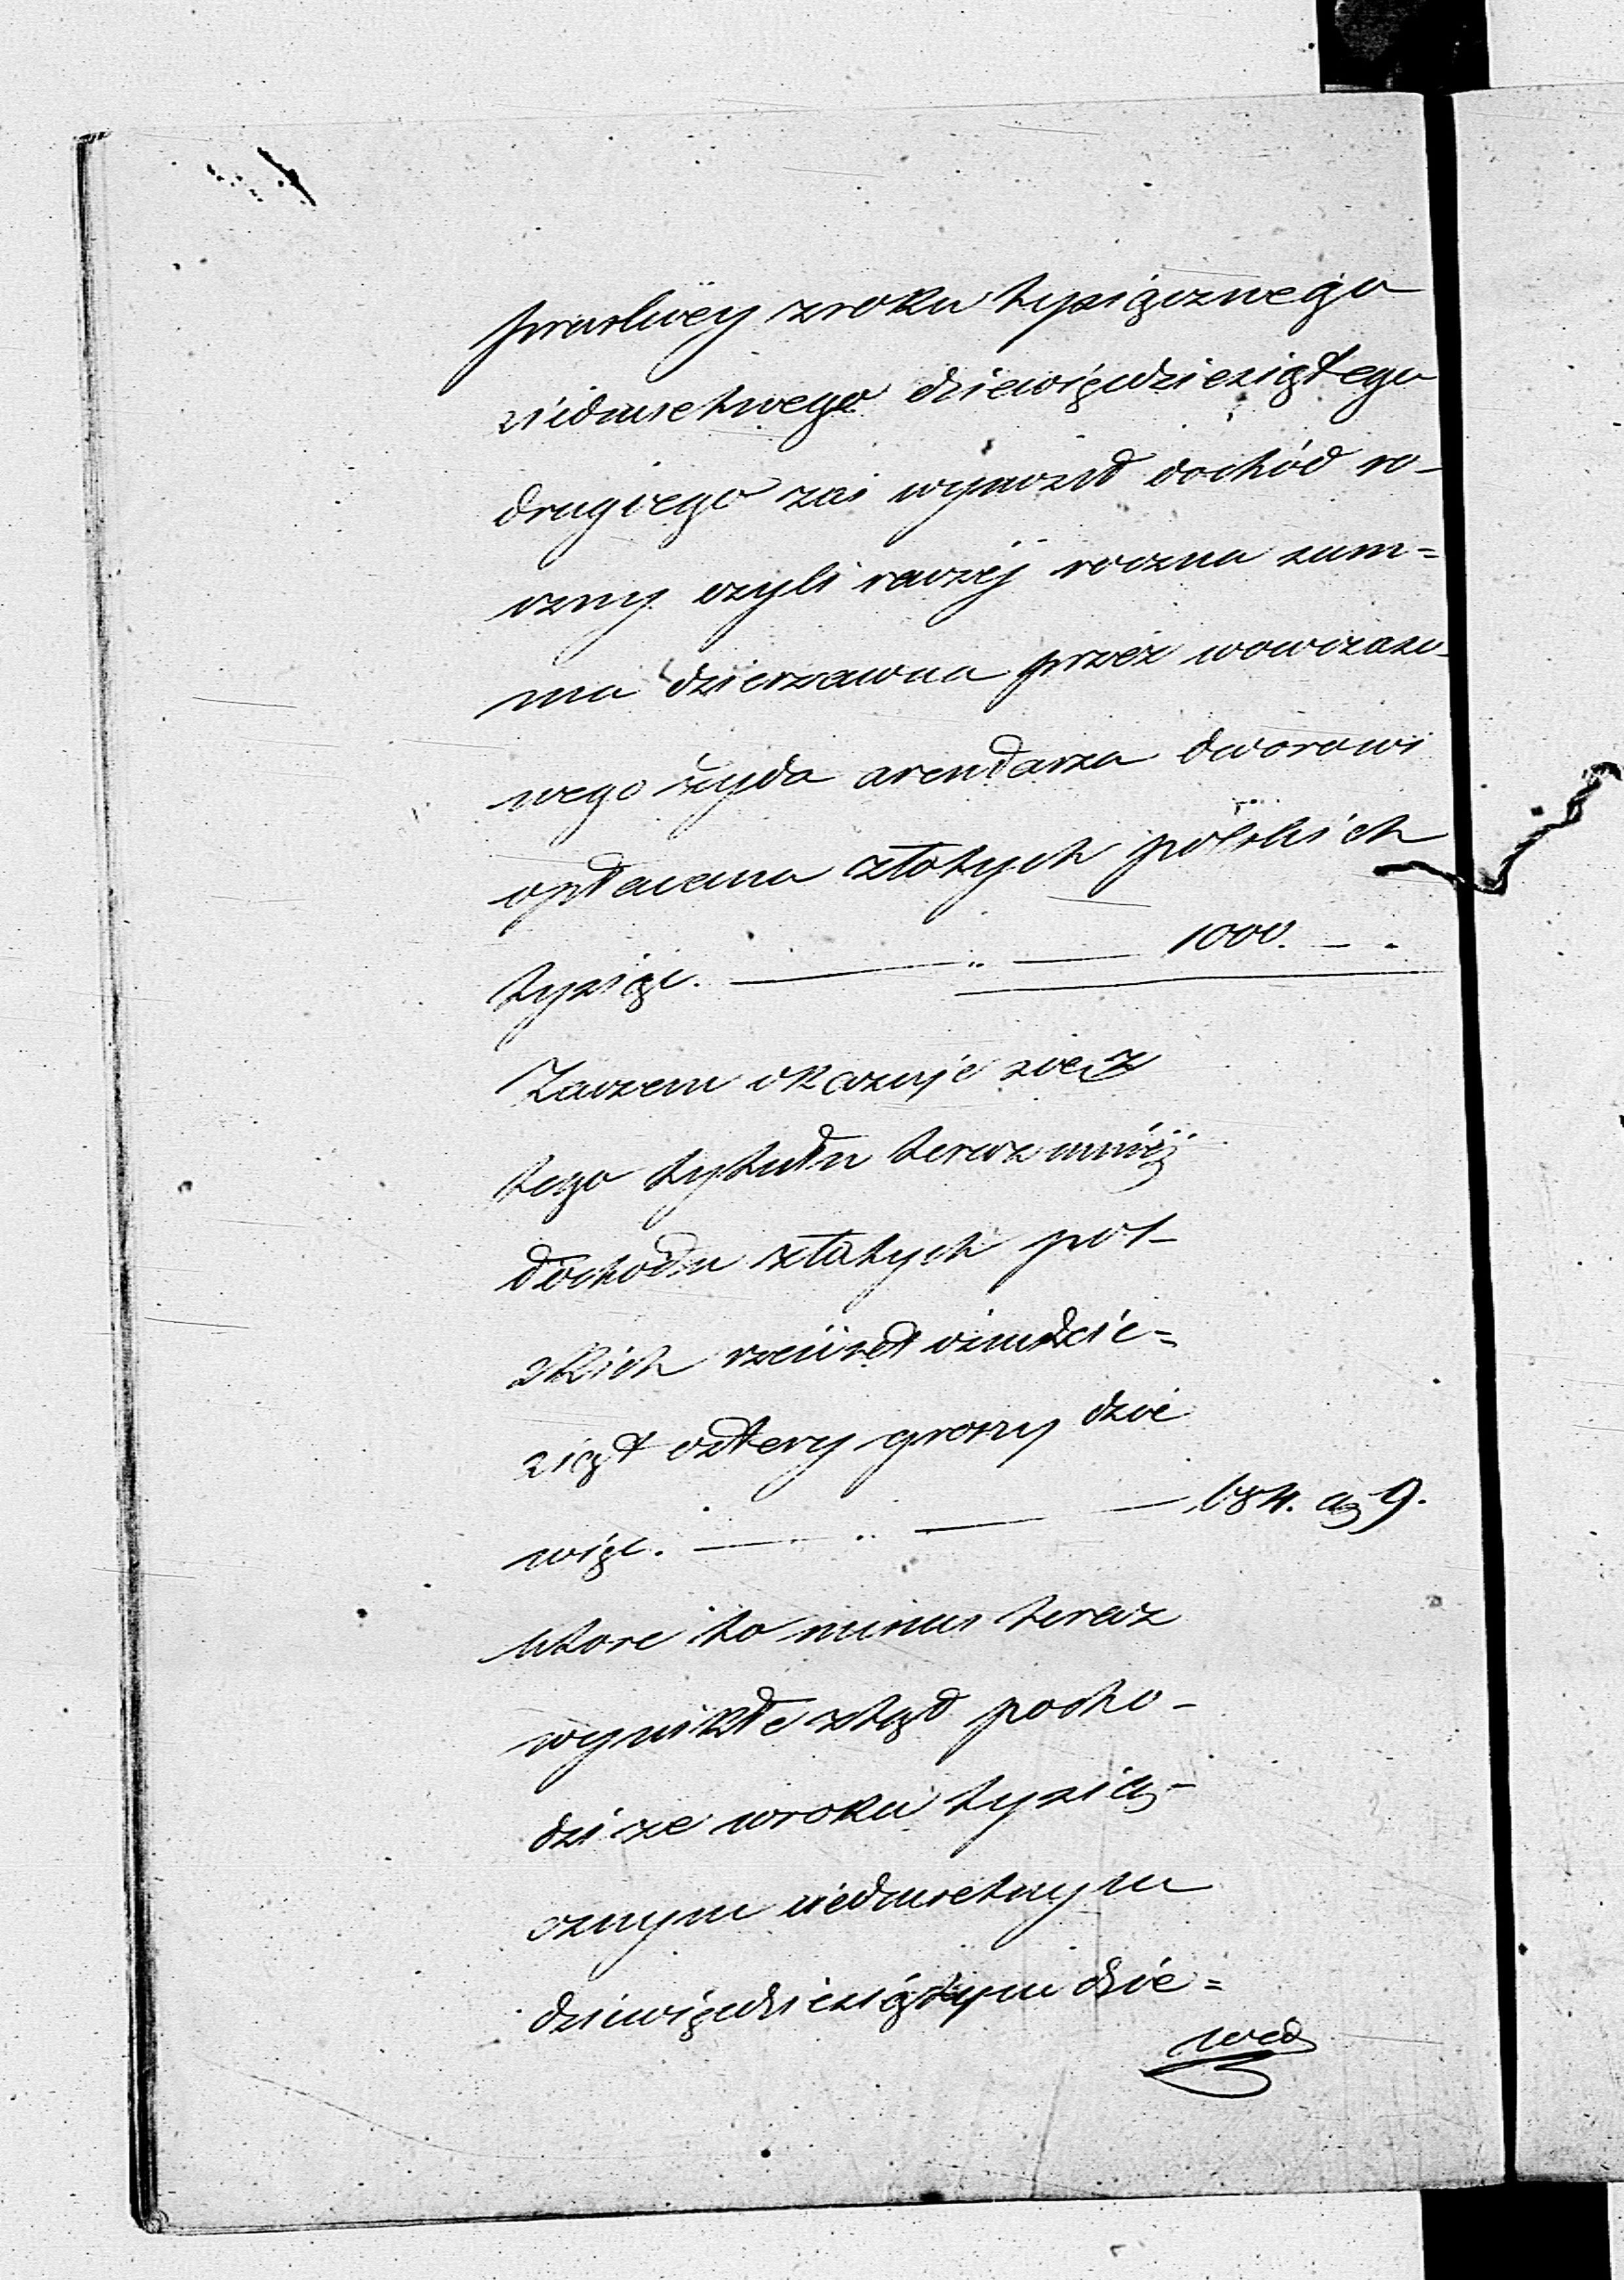 pruskiey z roku tysiącznego
siedmsetnego dziewiędziesiątego
drugiego zaś wynosił dochód ro-
czny czyli raczéj roczna sum=
ma dzierzawna przez wowczaso-
wego żyda arendarza dworowi
opłacana złotych polskich
tysiąc. — .. — 1000. — .
Zaczem okazuje sie z
tego tytułu teraz mniéj
dochodu złotych pol-
skich sześćset ośmdzie=
siąt cztery groszy dzie
więc. — .. — — 684. gr 9.
ktore to minus teraz
wynikłe ztąd pocho-
dzi ze w roku tysią-
cznym siedmsetnym
dziewiędziesiątym dzie=
wią